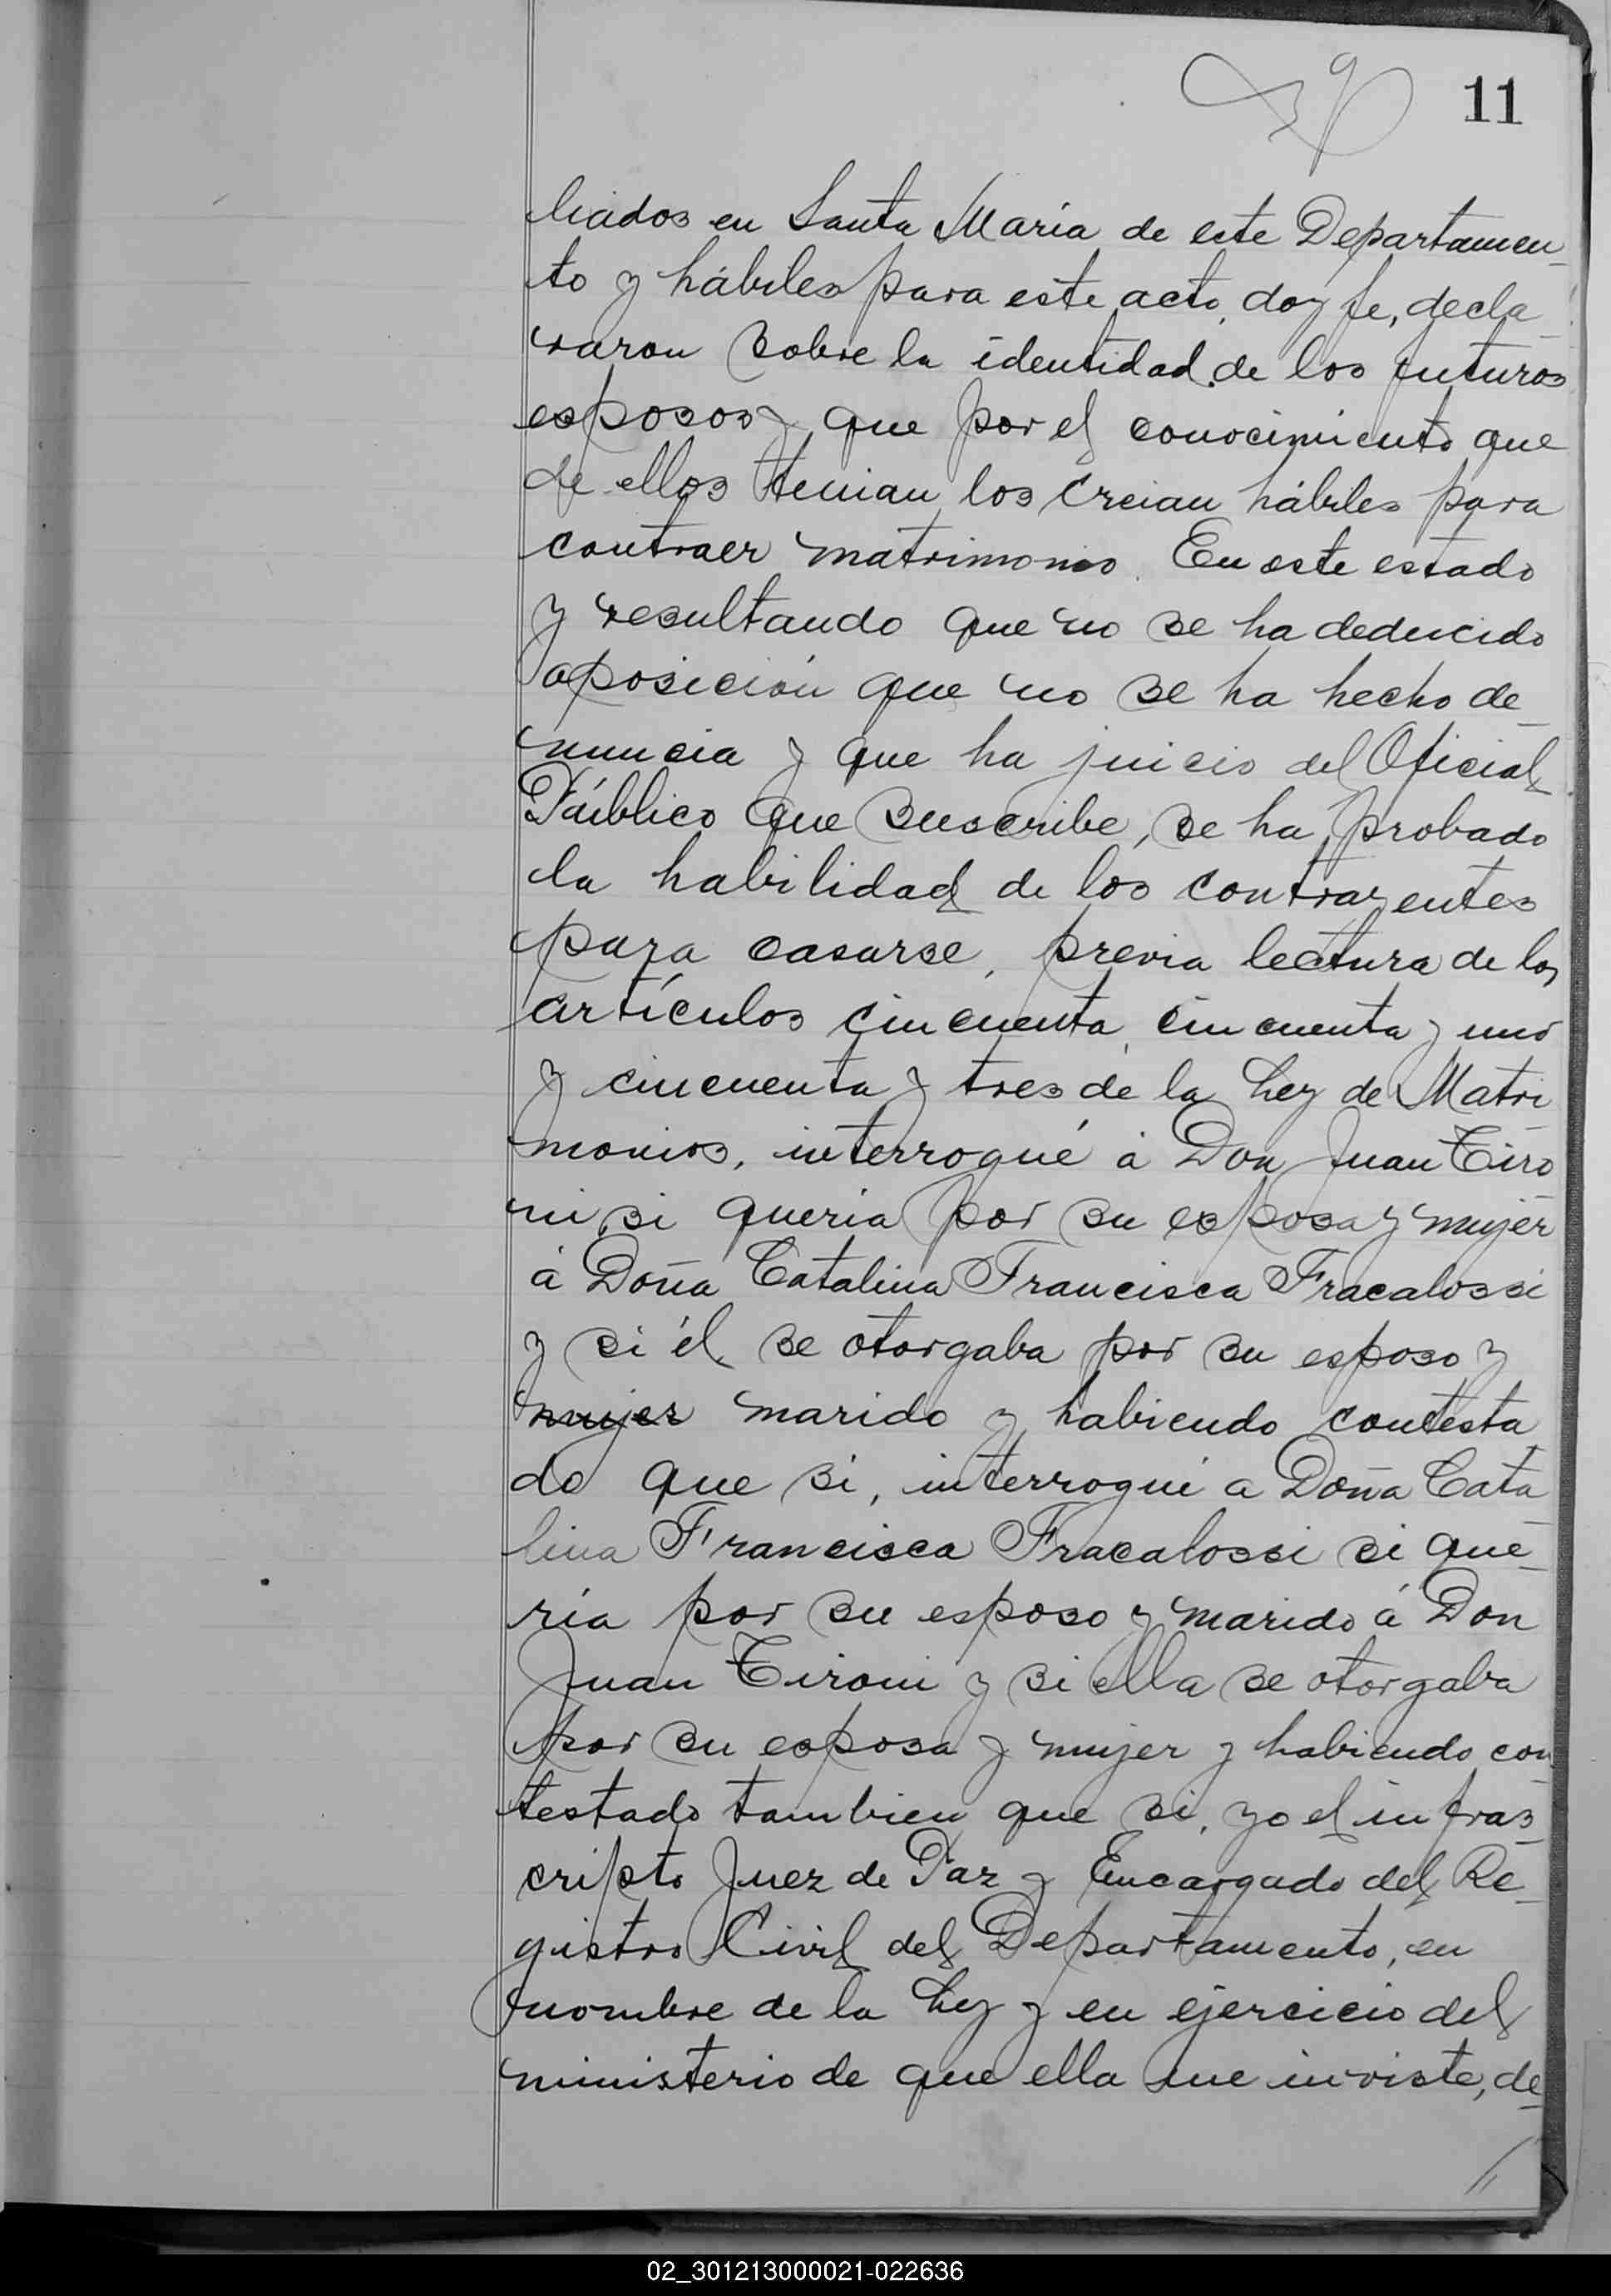 11
liados en Santa María de este Departamen-
to y hábiles para este acto, doy fe, decla-
raron sobre la identidad de los futuros
esposos y que por el conocimiento que
de ellos tenian los creian hábiles para
contraer matrimonio. En este estado
y resultando que no se ha deducido
oposición que no se ha hecho de-
nuncia y que ha juicio del Oficial
Público que suscribe, se ha probado
la habilidad de los contrayentes
para casarse, previa lectura de los
artículos cincuenta, cincuenta y uno
y cincuenta y tres de la Ley de Matri-
monios, interrogué á Don Juan Tiro-
ni si queria por su esposa y mujer
á Doña Catalina Francisca Fracalossi
y si él se otorgaba por su esposo y
mujer marido y habiendo contesta-
do que si, interrogué a Doña Cata-
lina Francisca Fracalossi si que-
ría por su esposo y marido á Don
Juan Tironi y si ella se otorgaba
por su esposa y mujer y habiendo con-
testado tambien que si, yo el infras-
cripto Juez de Paz y Encargado del Re-
gistro Civil del Departamento, en
nombre de la Ley y en ejercicio del
ministerio de que ella me inviste, de-
02_301213000021-022636